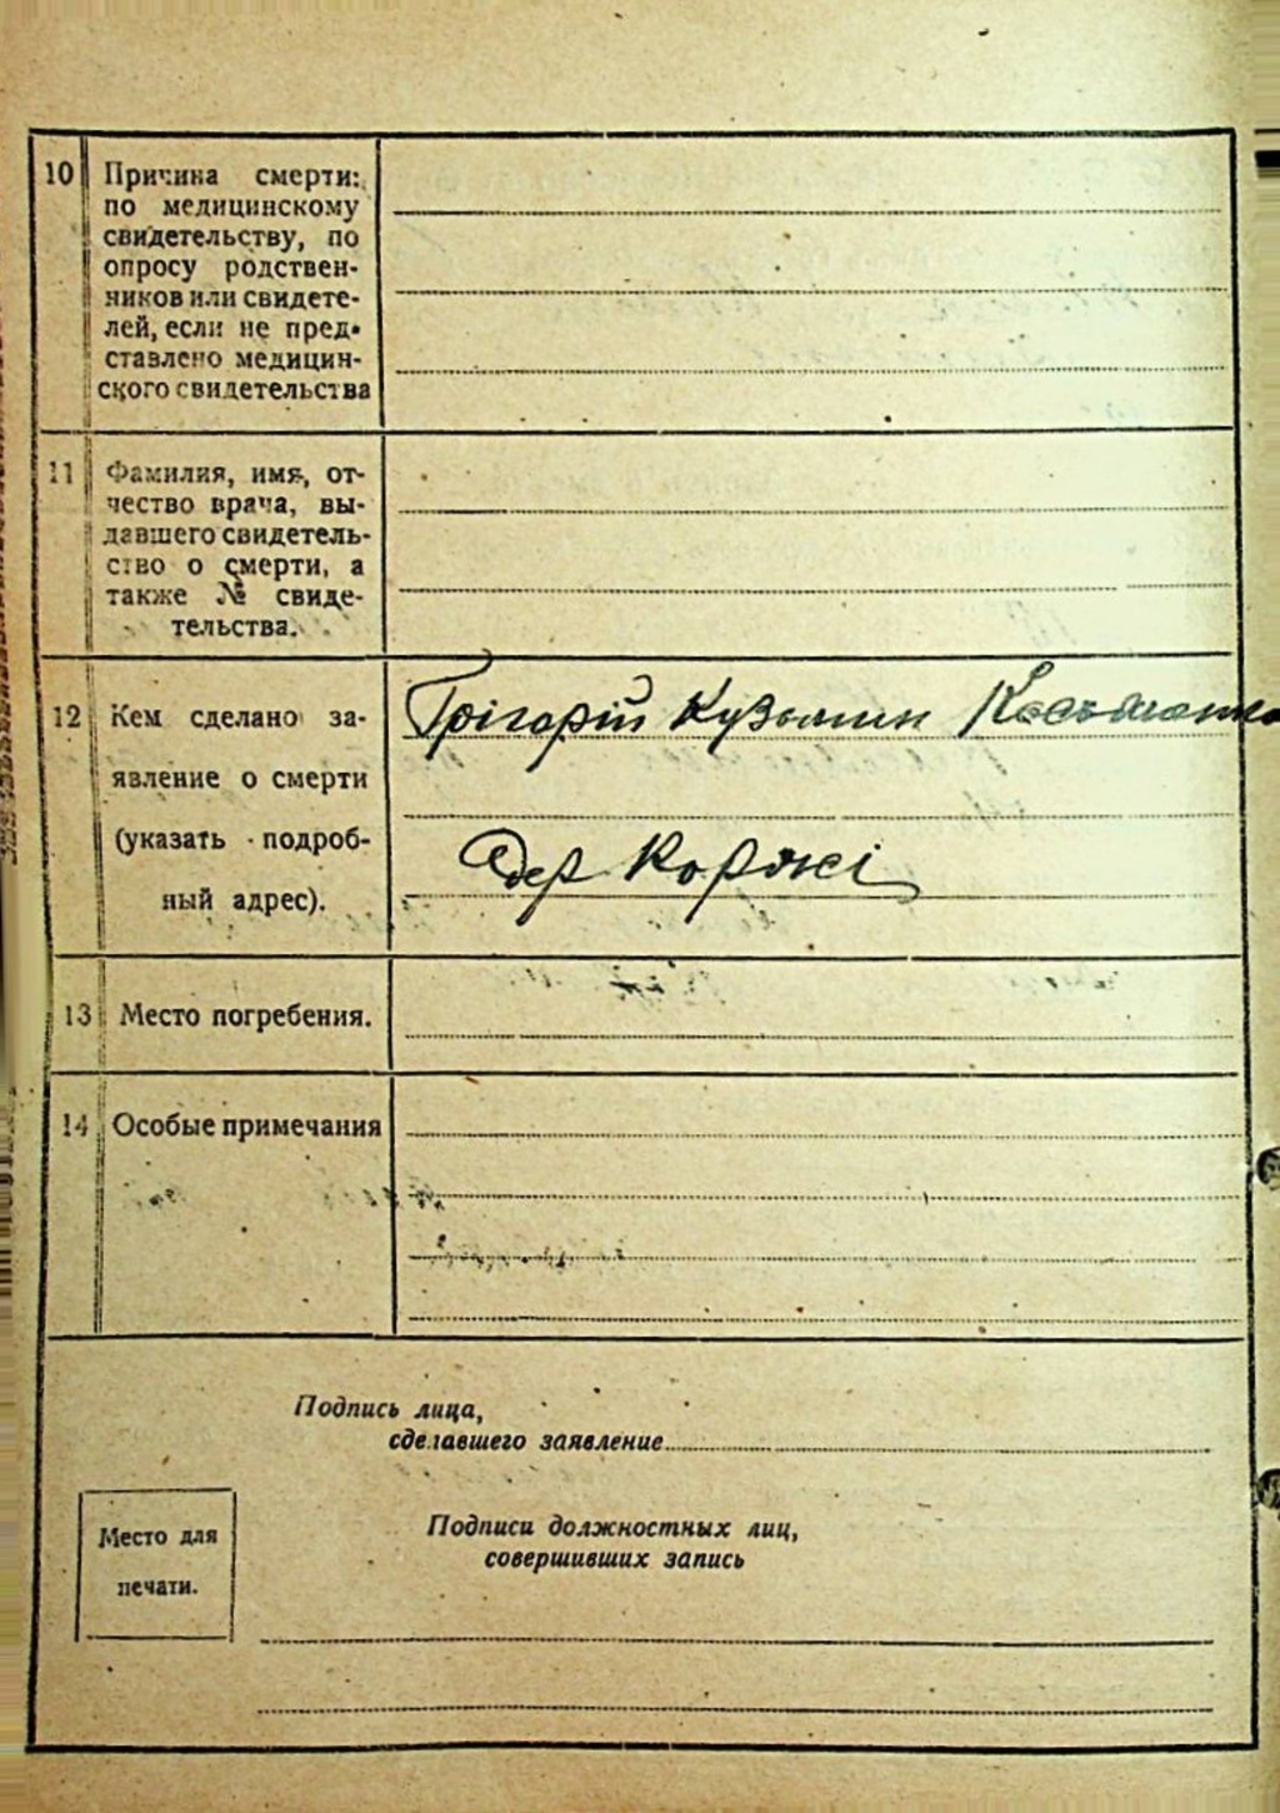 10 Причина смерти:
по медицинскому
свидетельству, по
опросу родствен-
ников или свидете-
лей, если не пред-
ставлено медицин-
ского свидетельства
11 Фамилия, имя, от-
чество врача, вы-
давшего свидетель-
ство о смерти, а
также № свиде-
тельства.
12 Кем сделано за-
явление о смерти
(указать подроб-
ный адрес).
Грігорій Кузьмин
дер Коржі
13 Место погребения.
14 Особые примечания
Подпись лица,
сделавшего заявление
Место для
печати.
Подписи должностных лиц,
совершивших запись